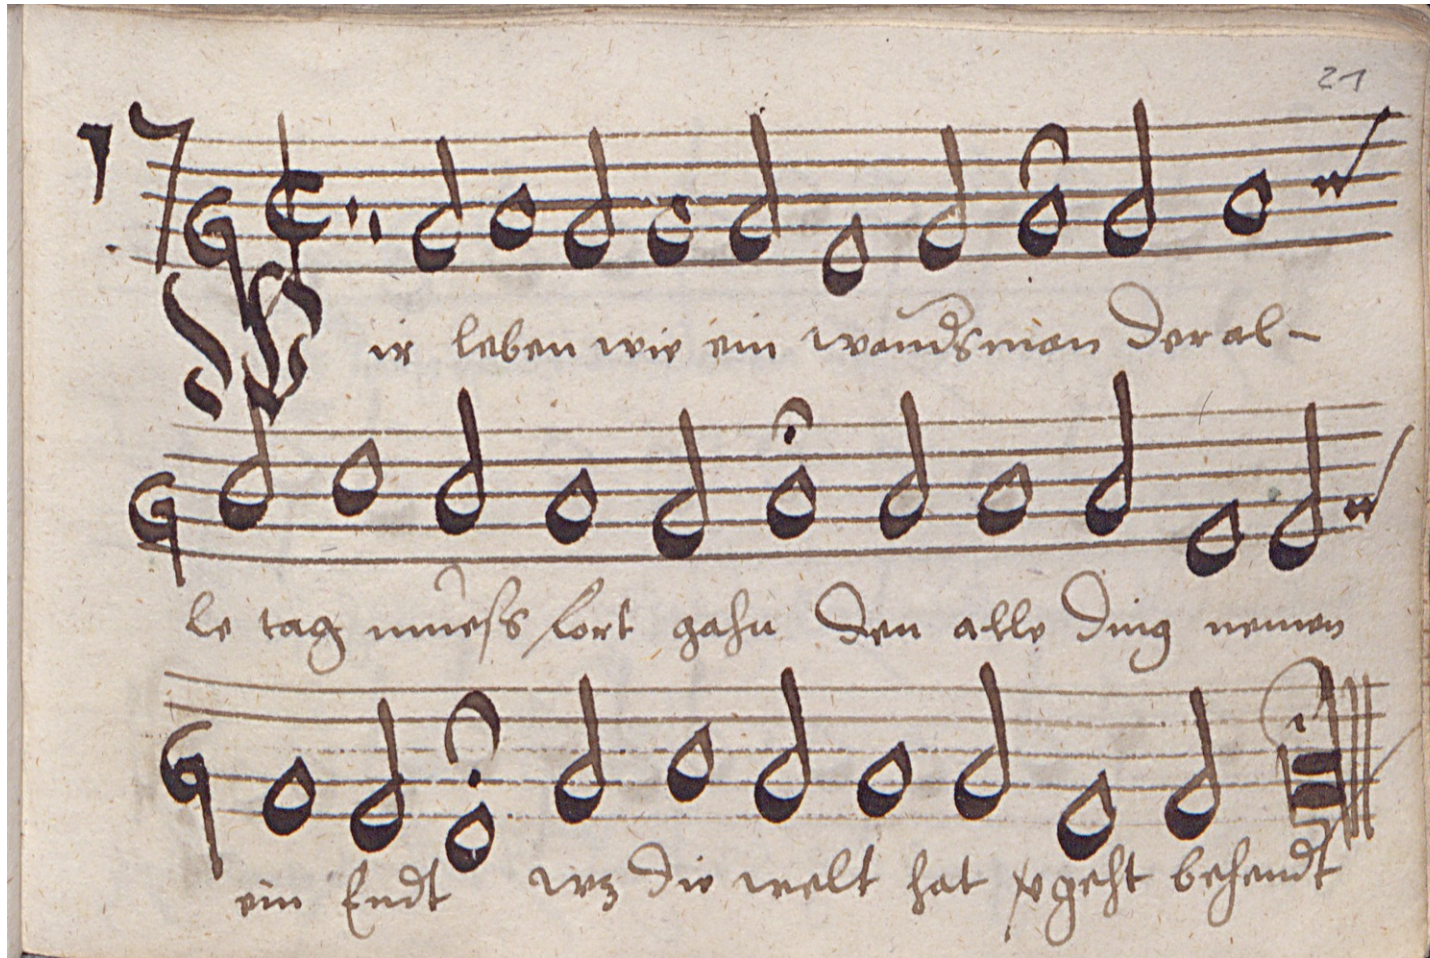 21
17
Wir leben wie ein wandsman der al-
le tag muess fort gahn den alle ding nemen
ein Endt wz die welt hat vgeht behendt